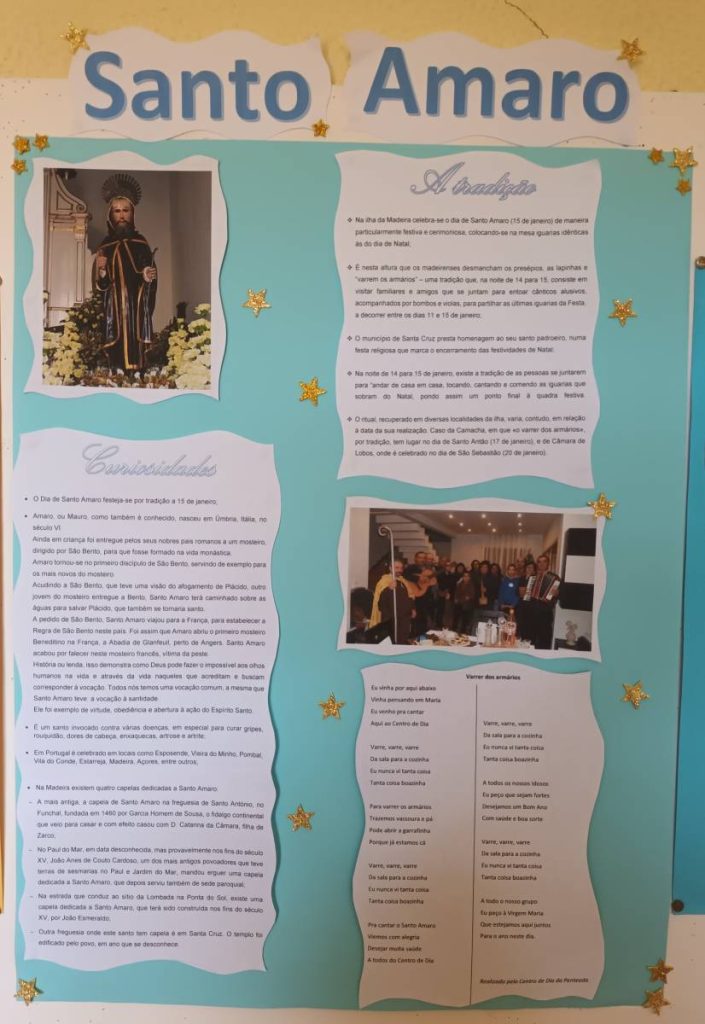 Santo Amaro
A tradição
❖ Na ilha da Madeira celebra-se o dia de Santo Amaro (15 de janeiro) de maneira
particularmente festiva e cerimoniosa, colocando-se na mesa iguarias idênticas
às do dia de Natal;
❖ É nesta altura que os madeirenses desmancham os presépios, as lapinhas e
"varrem os armários" – uma tradição que, na noite de 14 para 15, consiste em
visitar familiares e amigos que se juntam para entoar cânticos alusivos,
acompanhados por bombos e violas, para partilhar as últimas iguarias da Festa,
a decorrer entre os dias 11 e 15 de janeiro;
❖ O município de Santa Cruz presta homenagem ao seu santo padroeiro, numa
festa religiosa que marca o encerramento das festividades de Natal;
❖ Na noite de 14 para 15 de janeiro, existe a tradição de as pessoas se juntarem
para "andar de casa em casa, tocando, cantando e comendo as iguarias que
sobram do Natal, pondo assim um ponto final à quadra festiva.
❖ O ritual, recuperado em diversas localidades da ilha, varia, contudo, em relação
à data da sua realização. Caso da Camacha, em que «o varrer dos armários»,
por tradição, tem lugar no dia de Santo Antão (17 de janeiro), e de Câmara de
Lobos, onde é celebrado no dia de São Sebastião (20 de janeiro).
Curiosidades
• O Dia de Santo Amaro festeja-se por tradição a 15 de janeiro;
• Amaro, ou Mauro, como também é conhecido, nasceu em Úmbria, Itália, no
século VI
Ainda em criança foi entregue pelos seus nobres pais romanos a um mosteiro,
dirigido por São Bento, para que fosse formado na vida monástica.
Amaro tornou-se no primeiro discípulo de São Bento, servindo de exemplo para
os mais novos do mosteiro.
Acudindo a São Bento, que teve uma visão do afogamento de Plácido, outro
jovem do mosteiro entregue a Bento, Santo Amaro terá caminhado sobre as
águas para salvar Plácido, que também se tornaria santo.
A pedido de São Bento, Santo Amaro viajou para a França, para estabelecer a
Regra de São Bento neste país. Foi assim que Amaro abriu o primeiro mosteiro
Beneditino na França, a Abadia de Glanfeuil, perto de Angers. Santo Amaro
acabou por falecer neste mosteiro francês, vítima da peste.
História ou lenda, isso demonstra como Deus pode fazer o impossível aos olhos
humanos na vida e através da vida naqueles que acreditam e buscam
corresponder à vocação. Todos nós temos uma vocação comum, a mesma que
Santo Amaro teve: a vocação à santidade.
Ele foi exemplo de virtude, obediência e abertura à ação do Espírito Santo.
• É um santo invocado contra várias doenças, em especial para curar gripes,
rouquidão, dores de cabeça, enxaquecas, artrose e artrite;
• Em Portugal é celebrado em locais como Esposende, Vieira do Minho, Pombal,
Vila do Conde, Estarreja, Madeira, Açores, entre outros;
• Na Madeira existem quatro capelas dedicadas a Santo Amaro.
– A mais antiga, a capela de Santo Amaro na freguesia de Santo António, no
Funchal, fundada em 1460 por Garcia Homem de Sousa, o fidalgo continental
que veio para casar e com efeito casou com D. Catarina da Câmara, filha de
Zarco;
– No Paul do Mar, em data desconhecida, mas provavelmente nos fins do século
XV, João Anes de Couto Cardoso, um dos mais antigos povoadores que teve
terras de sesmarias no Paul e Jardim do Mar, mandou erguer uma capela
dedicada a Santo Amaro, que depois serviu também de sede paroquial;
– Na estrada que conduz ao sítio da Lombada na Ponta do Sol, existe uma
capela dedicada a Santo Amaro, que terá sido construída nos fins do século
XV, por João Esmeraldo;
– Outra freguesia onde este santo tem capela é em Santa Cruz. O templo foi
edificado pelo povo, em ano que se desconhece.
Varrer dos armários
Eu vinha por aqui abaixo
Vinha pensando em Maria
Eu venho pra cantar
Aqui ao Centro de Dia
Varre, varre, varre
Da sala para a cozinha
Eu nunca vi tanta coisa
Tanta coisa boazinha
Para varrer os armários
Trazemos vassoura e pá
Pode abrir a garrafinha
Porque já estamos cá
Varre, varre, varre
Da sala para a cozinha
Eu nunca vi tanta coisa
Tanta coisa boazinha
Pra cantar o Santo Amaro
Viemos com alegria
Desejar muita saúde
A todos do Centro de Dia
Varre, varre, varre
Da sala para a cozinha
Eu nunca vi tanta coisa
Tanta coisa boazinha
A todos os nossos idosos
Eu peço que sejam fortes
Desejamos um Bom Ano
Com saúde e boa sorte
Varre, varre, varre
Da sala para a cozinha
Eu nunca vi tanta coisa
Tanta coisa boazinha
A todo o nosso grupo
Eu peço à Virgem Maria
Que estejamos aqui juntos
Para o ano neste dia.
Realizado pelo Centro de Dia da Penteada